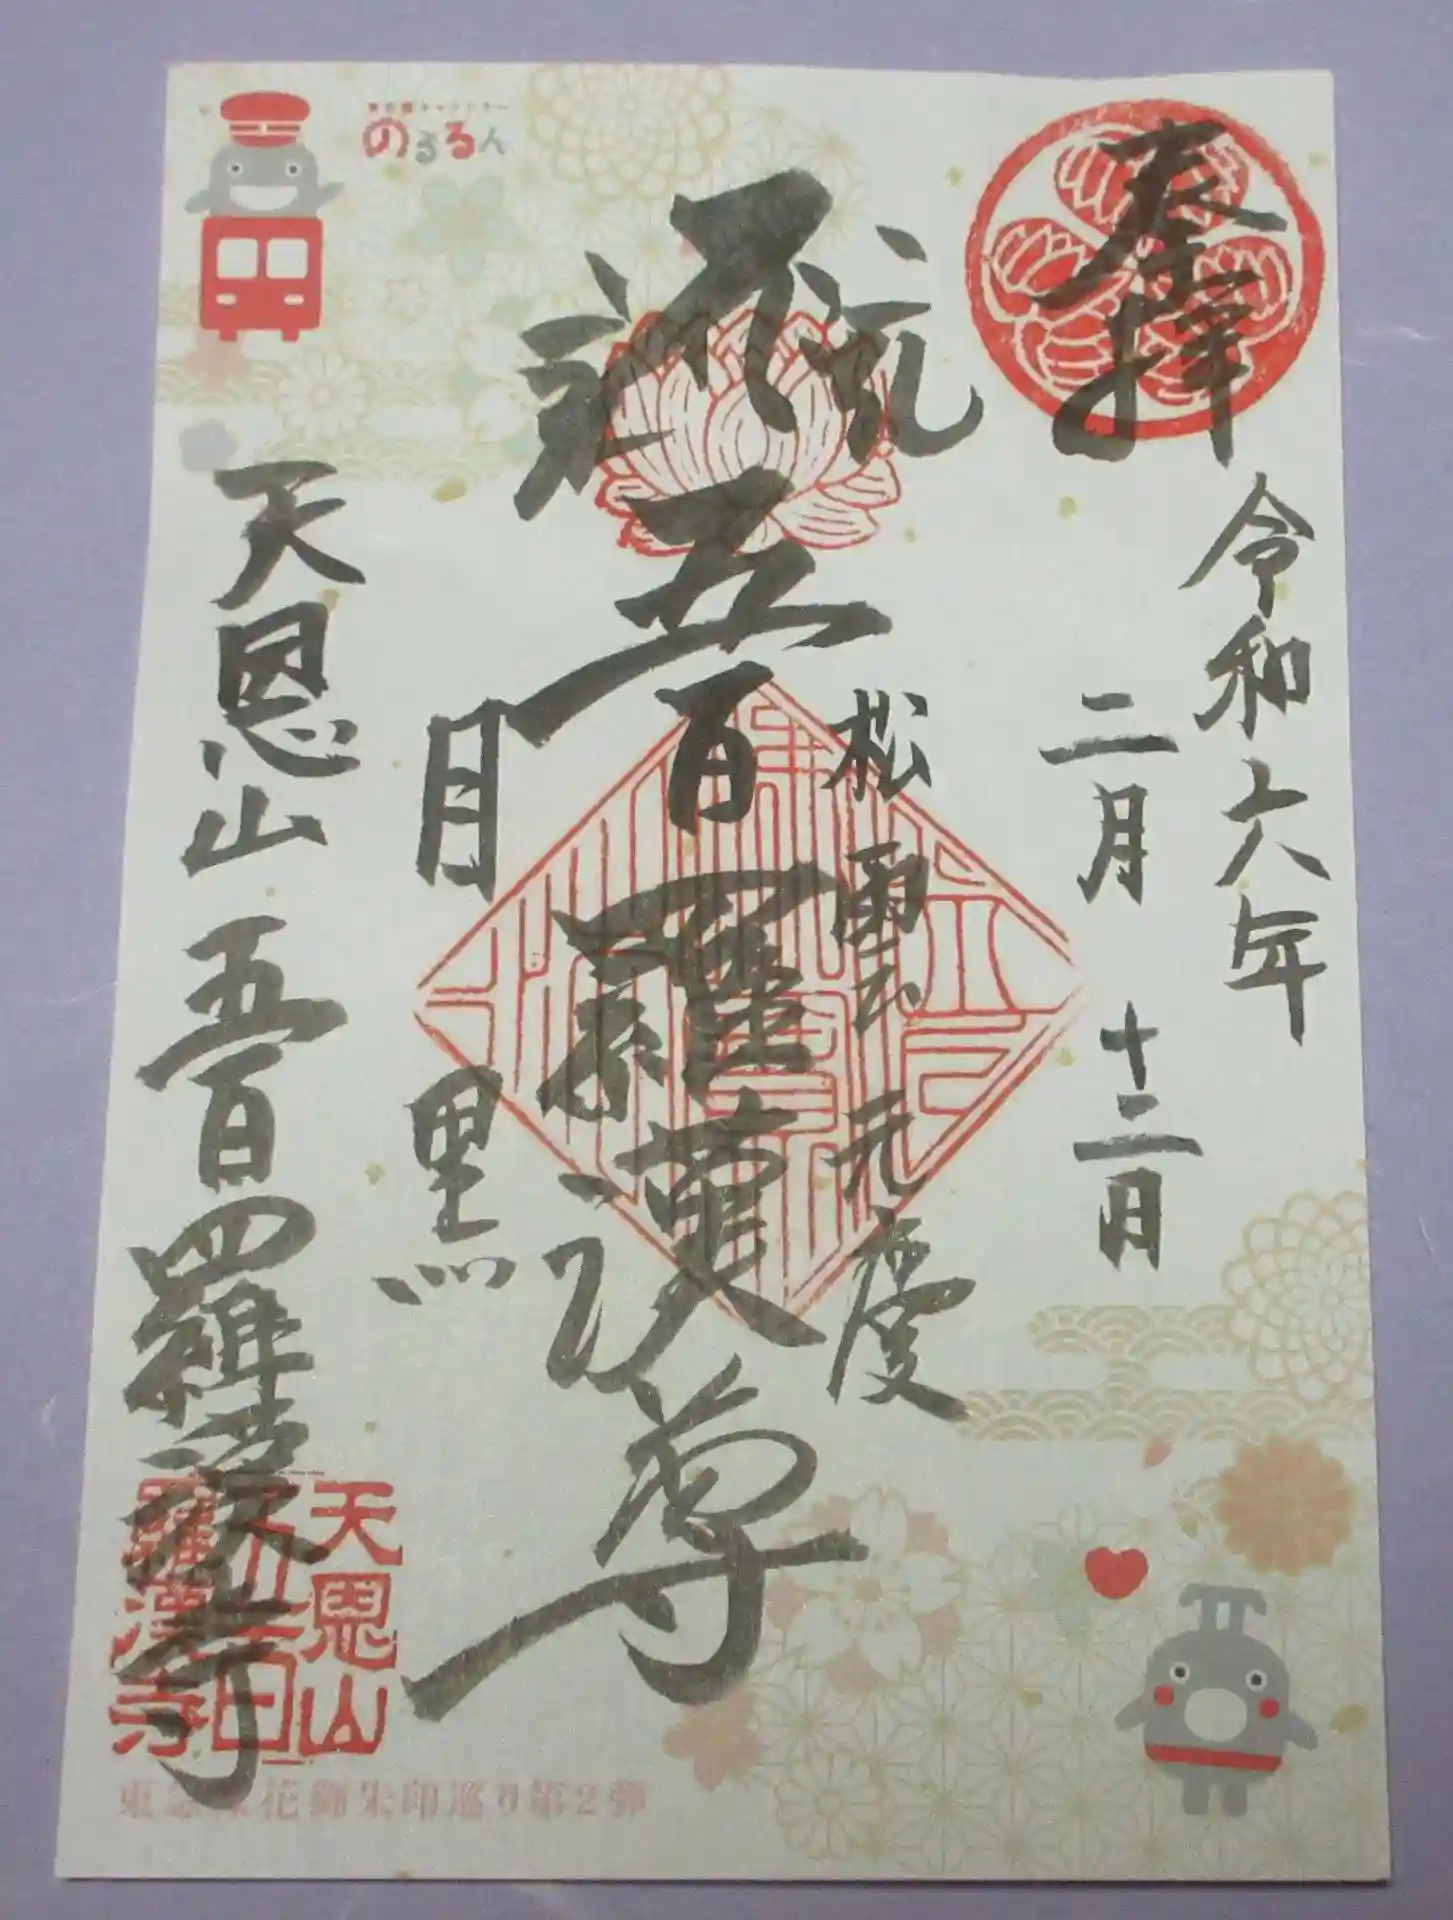 奉拝
令和六年
二月 十二日
松雲元慶
五百羅漢尊
目黒
天恩山 五百羅漢寺
のるるん
天恩山
五百
羅漢寺
東急東花御朱印巡り第2弾